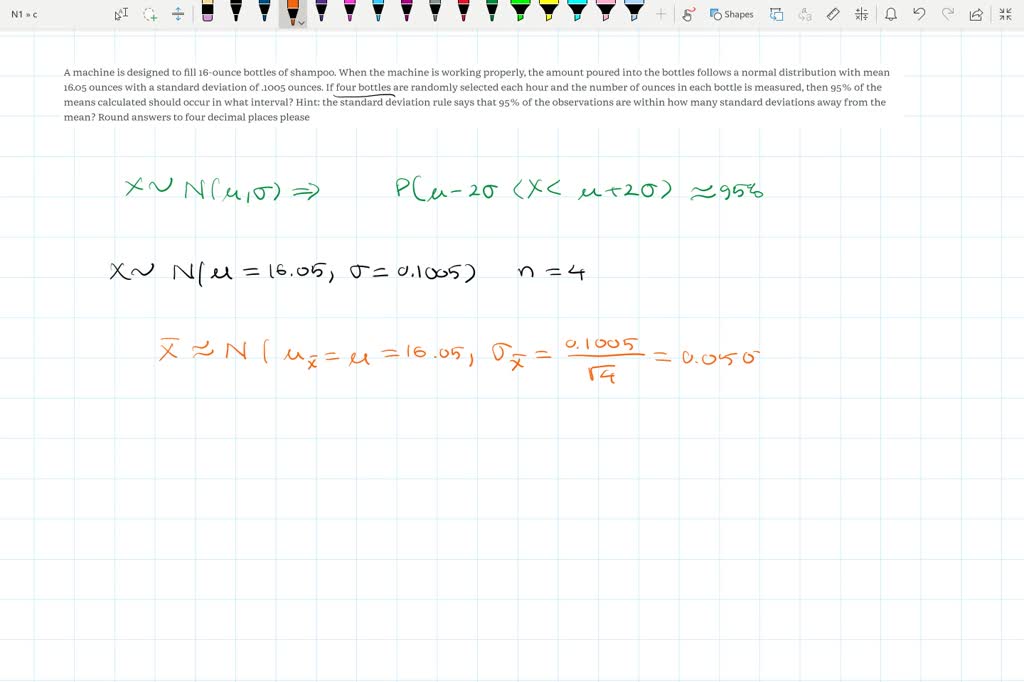 N1 » c
Shapes
A machine is designed to fill 16-ounce bottles of shampoo. When the machine is working properly, the amount poured into the bottles follows a normal distribution with mean
16.05 ounces with a standard deviation of .1005 ounces. If four bottles are randomly selected each hour and the number of ounces in each bottle is measured, then 95% of the
means calculated should occur in what interval? Hint: the standard deviation rule says that 95% of the observations are within how many standard deviations away from the
mean? Round answers to four decimal places please
X ~ N(μ,σ) ⇒ P(μ-2σ <X< μ+2σ) ≈95%
X~ N(μ = 16.05, σ=0.1005) n =4
X̄ ≈ N ( μx̄ = μ = 16.05, σx̄ = 0.1005/√4 = 0.050